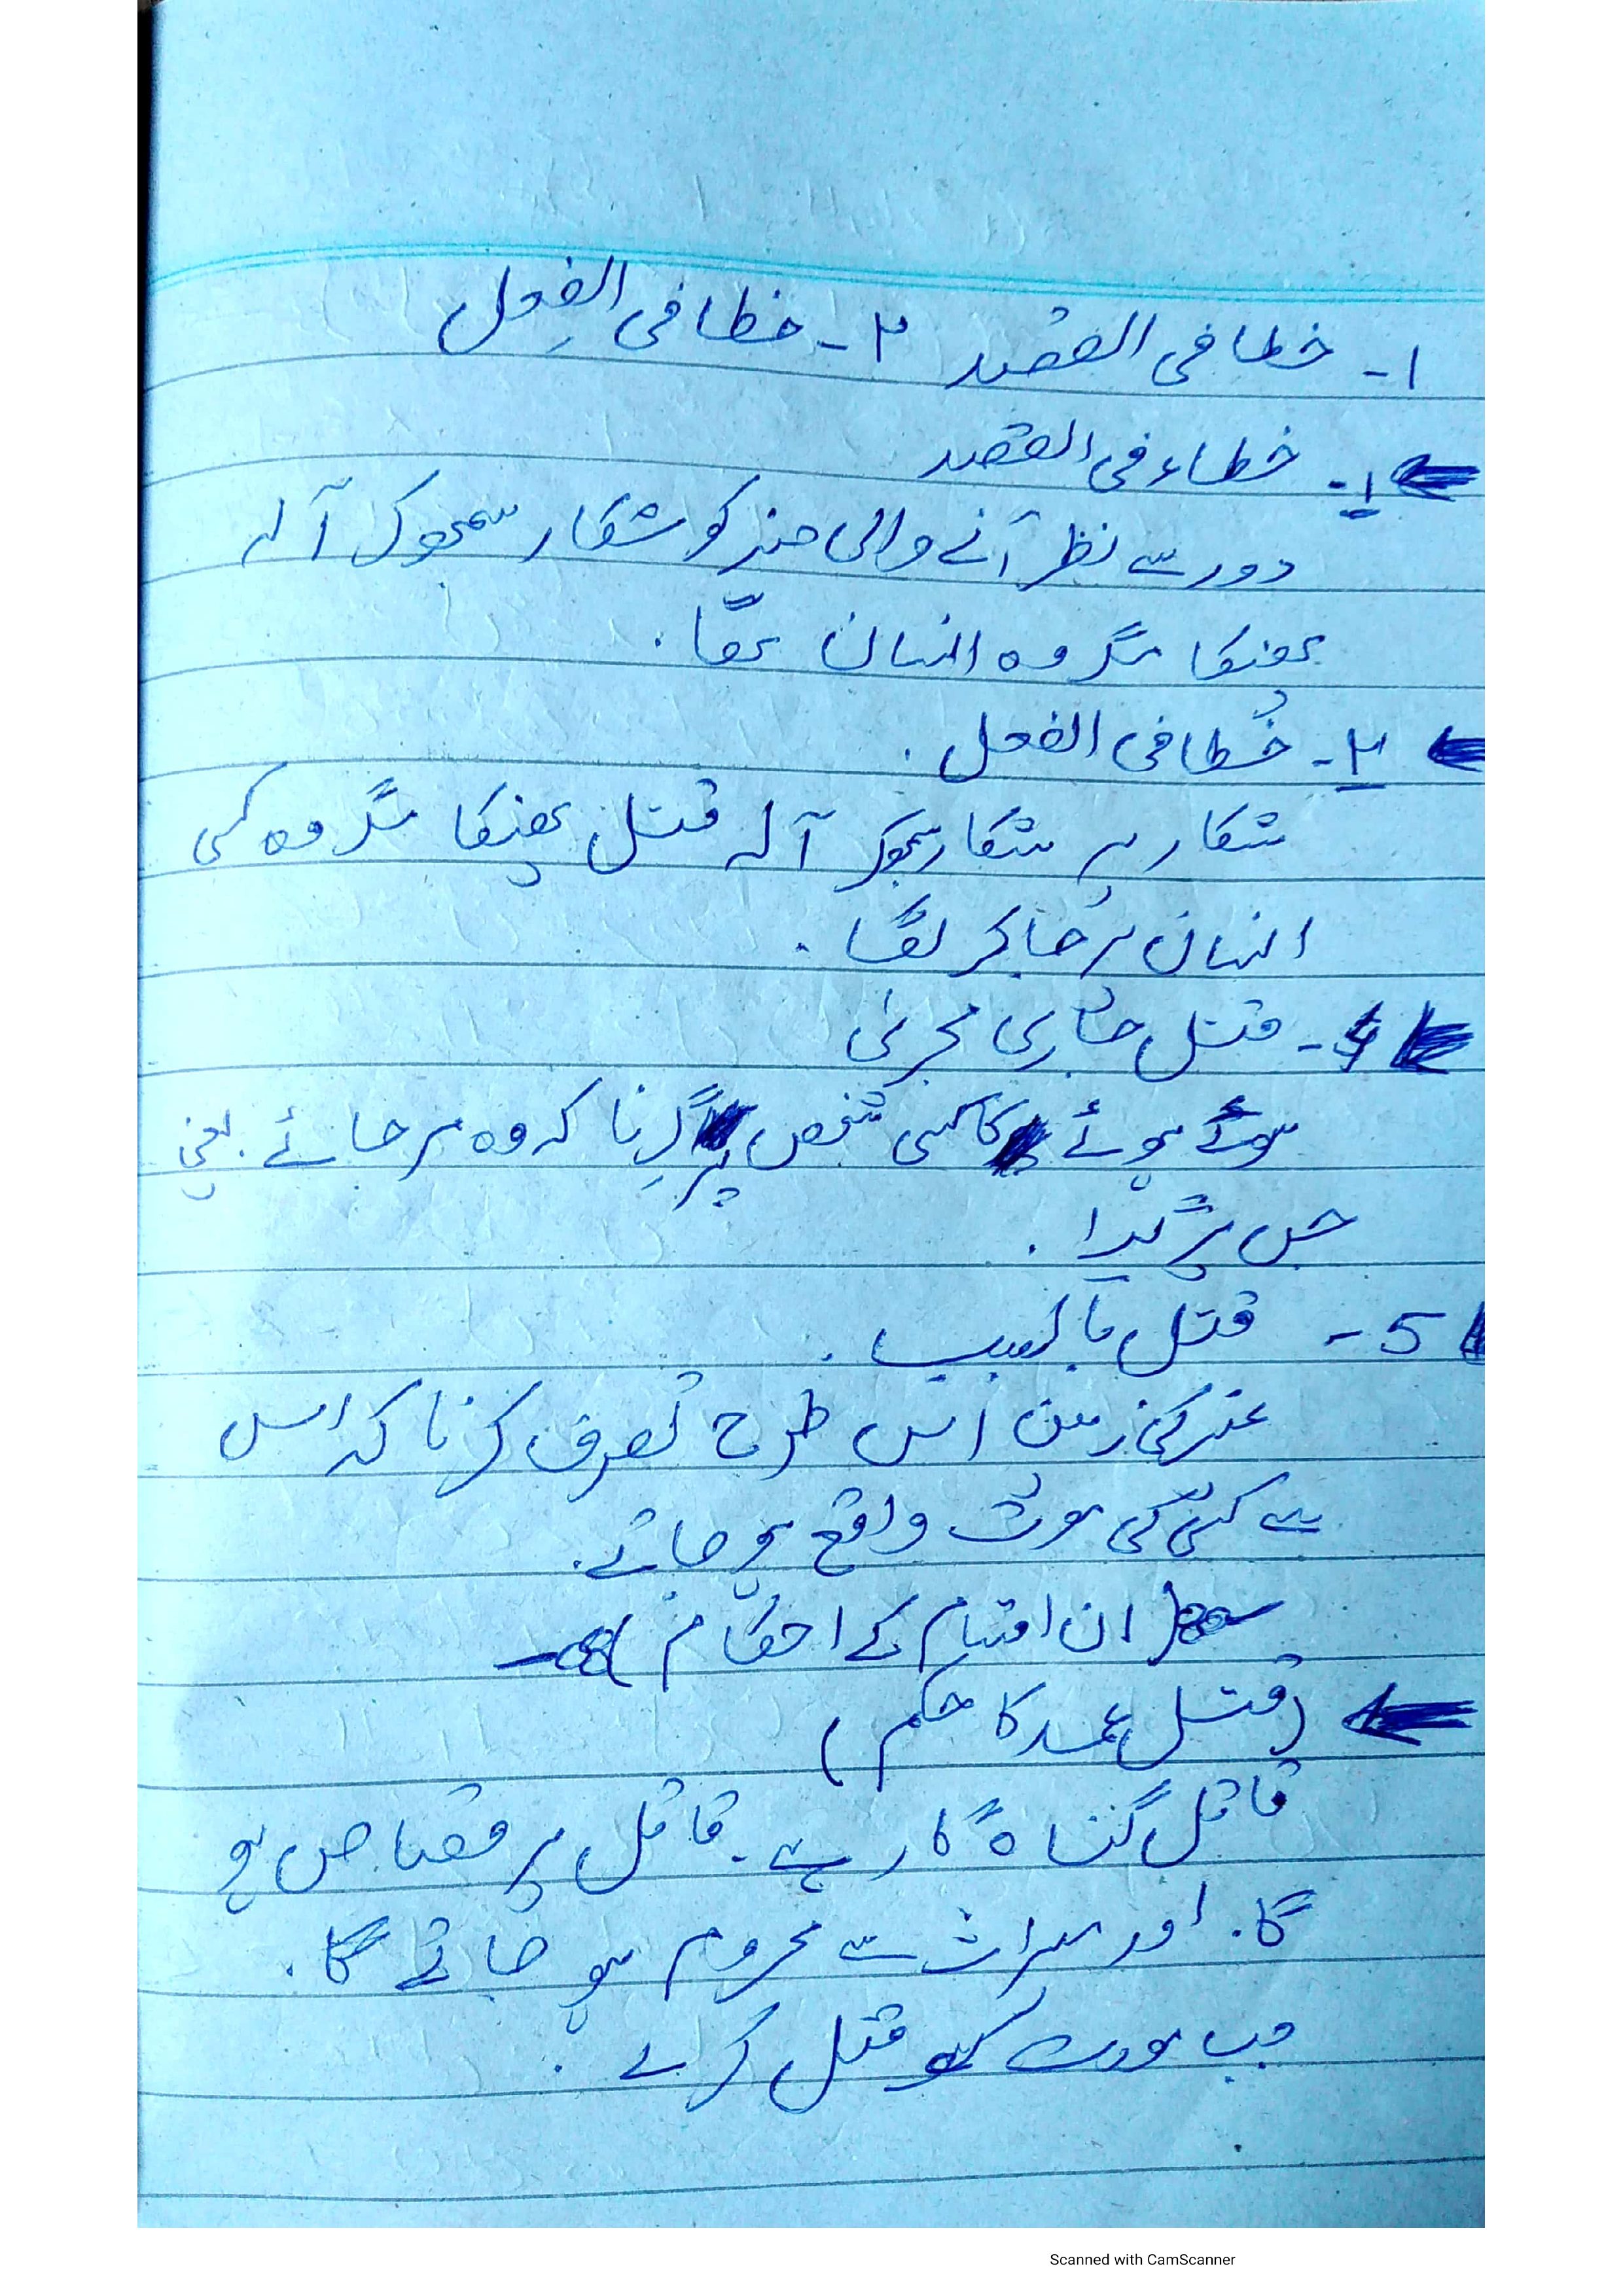 ۱- خطا فی القصد ۲- خطا فی الفعل
۱- خطاء فی القصد
دور سے نظر آنے والی چیز کو شکار سمجھ کر آلہ
پھینکا مگر وہ انسان تھا.
۲- خطا فی الفعل.
شکار پر شکار سمجھ کر آلہ قتل پھینکا مگر وہ کسی
انسان پر جا کر لگا.
4- قتل جاری مجریٰ
سوئے ہوئے کا کسی شخص پر گرنا کہ وہ مر جائے. یعنی
جس پر گرا.
5- قتل بالسبب.
غیر کی زمین اس طرح تصرف کرنا کہ اس
سے کسی کی موت واقع ہو جائے.
(ان اقسام کے احکام)
(قتل عمد کا حکم)
قاتل گناہ گار ہے. قاتل پر قصاص ہو
گا. اور میراث سے محروم ہو جائے گا.
جب مورث کو قتل کرے.
Scanned with CamScanner